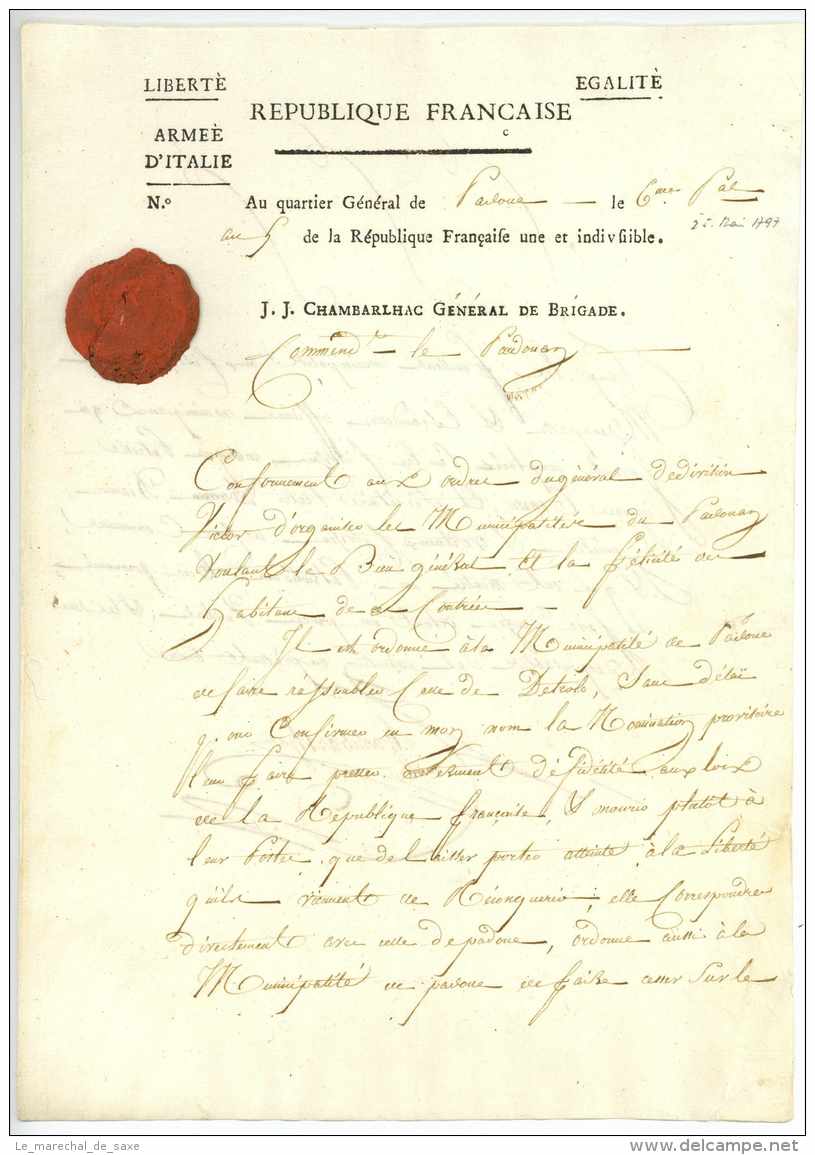 LIBERTÈ
EGALITÈ
REPUBLIQUE FRANCAISE
c
ARMEÈ
D'ITALIE
N.º Au quartier Général de Padoue — le 6me Pal
an 5 de la Républiqve Françaiſe une et indivsiible.
25. Mai 1797
J. J. CHAMBARLHAC GÉNÉRAL DE BRIGADE.
Commendt le Padouan
Conformement aux ordres du général dedivition
Victor d'organiser les Municipatités du Padouan
Voulant le Bien général et la félicité des
habitans de la Contrée
Il est ordonné à la Municipatité de Padoue
de faire rassembler Celle de , Sans délai
Confirmer en mon nom la Nomination provitoire
Leur faire preter serment défidétité aux loix
de la République françaises, mourir plutôt à
leur Postes que de laisser porter atteinte à la Liberté
quils viennent de Réconquerir, elle Correspondra
directement avec celle de padoue, ordonne aussi à la
Municipatité de padoue de faire cesser Sur le
Le_marechal_de_saxe
delcampe.net